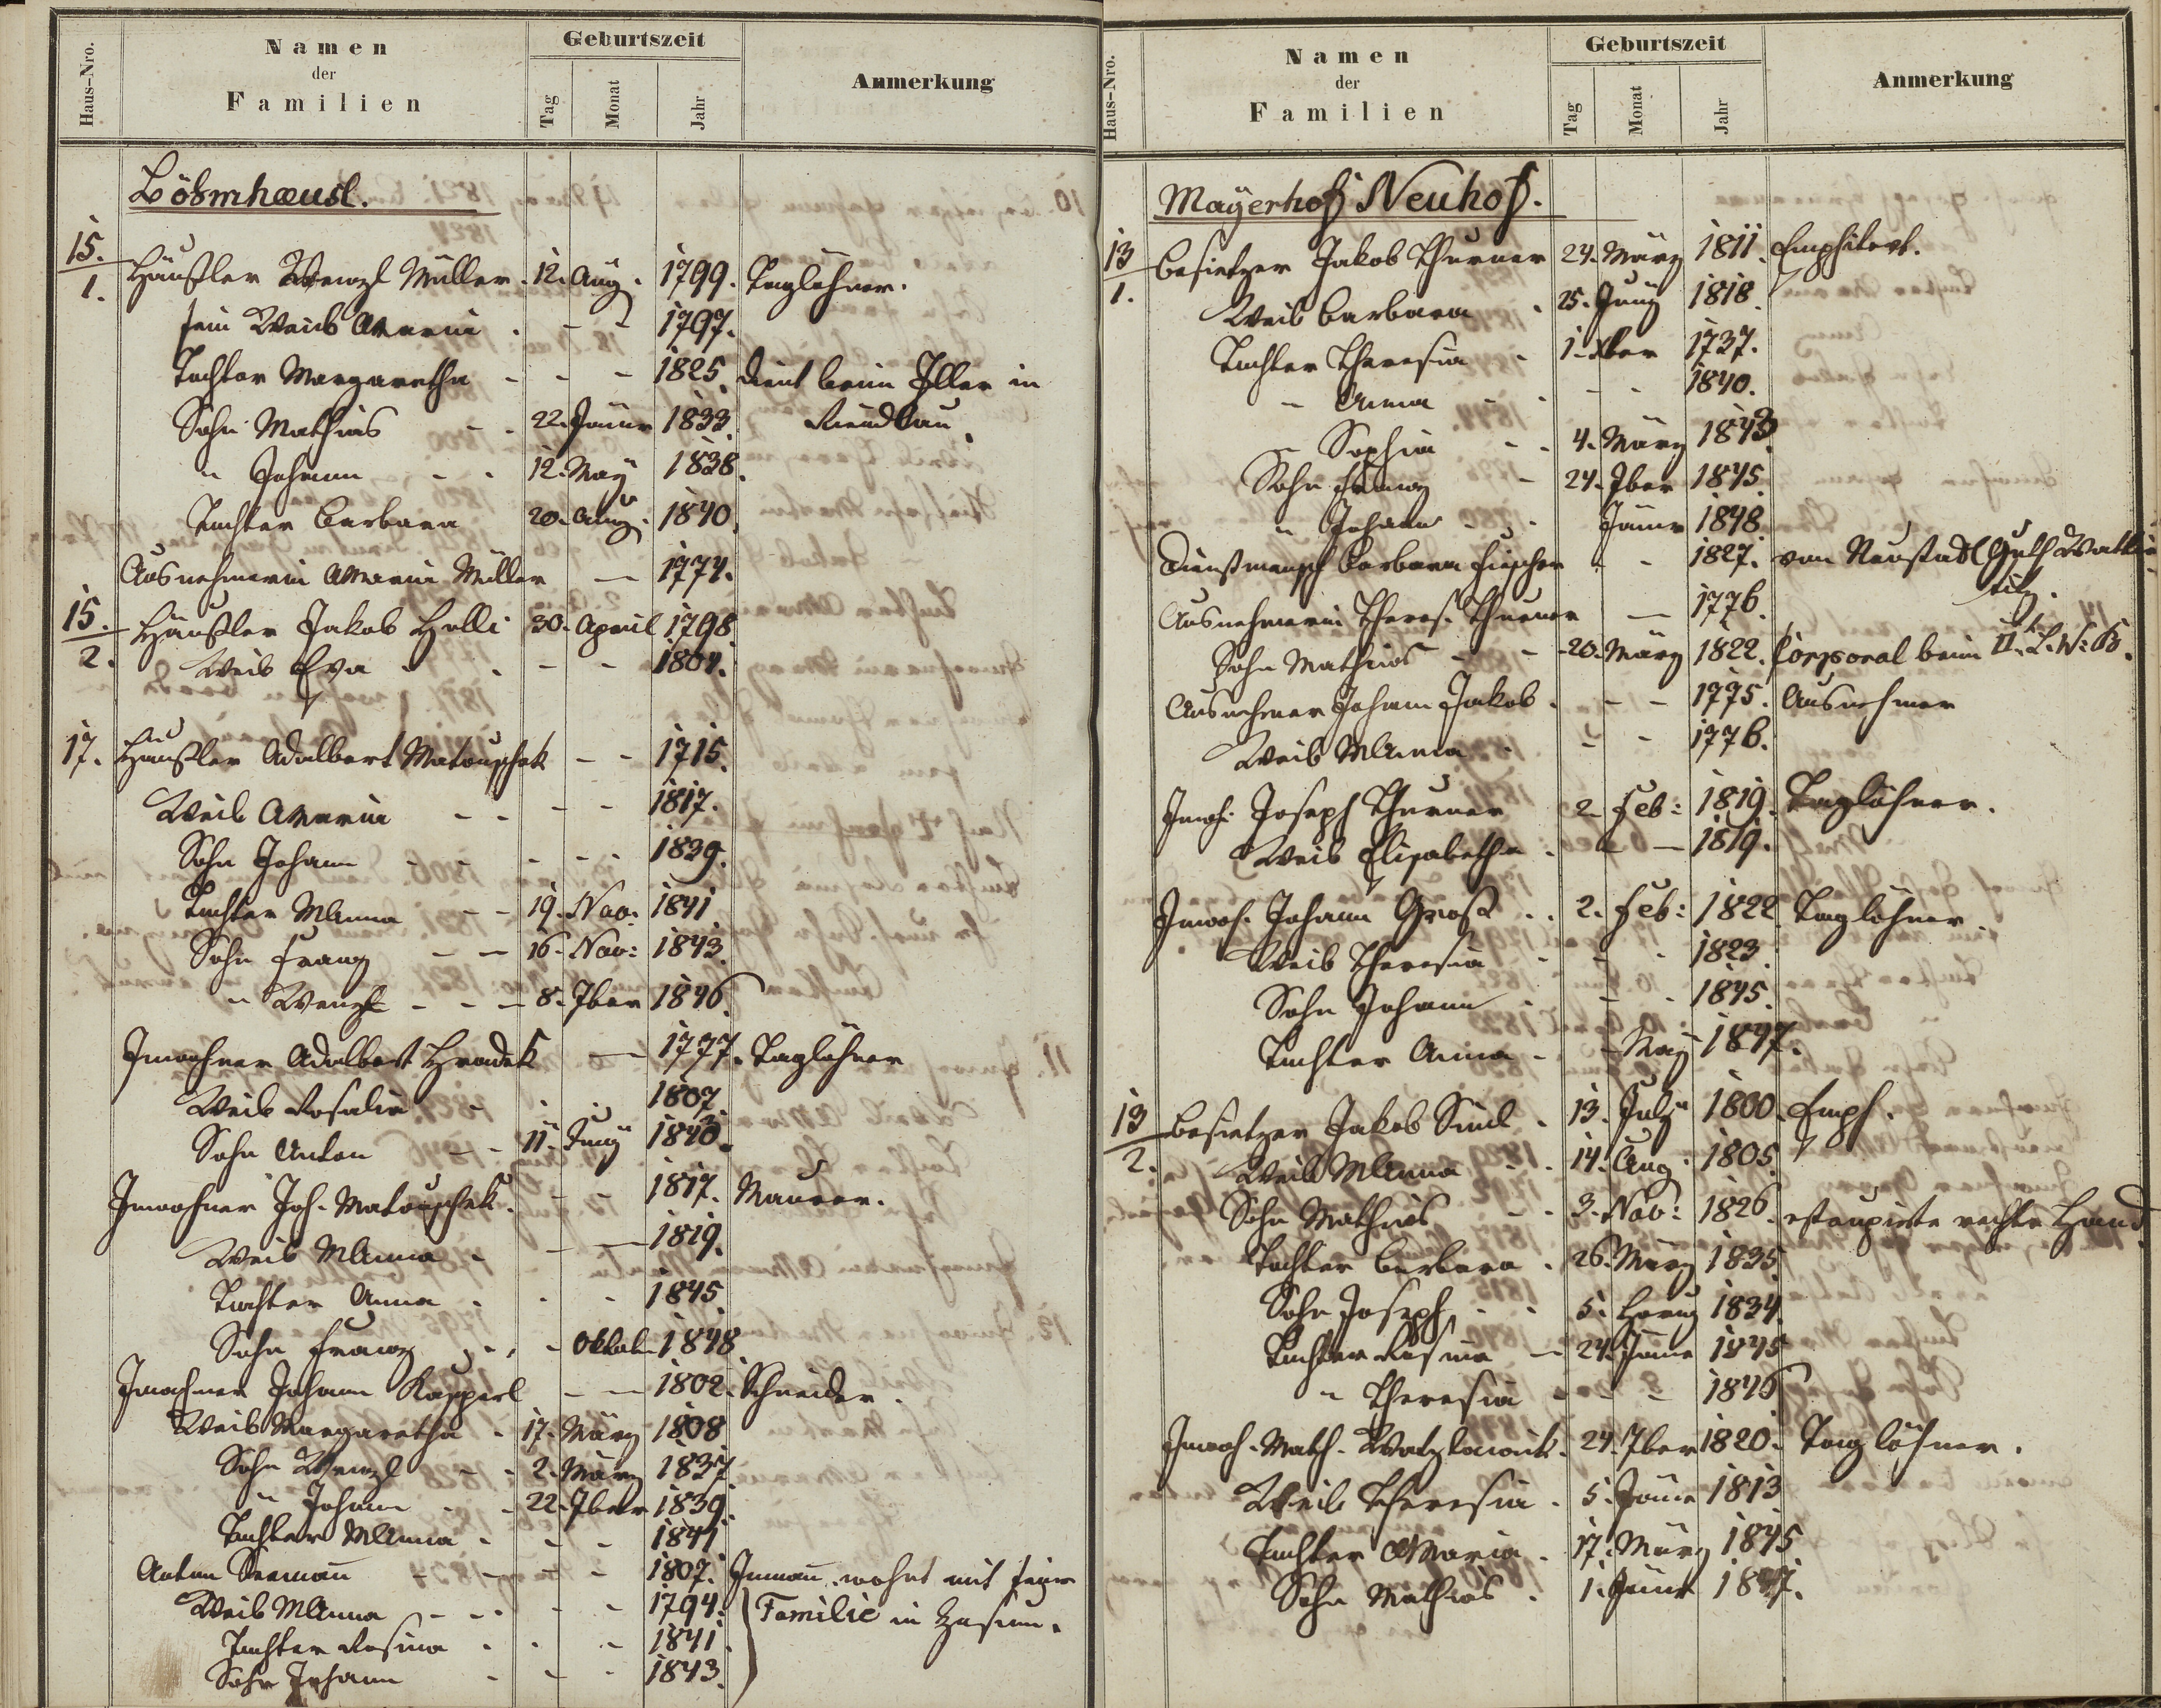 Haus-Nro. Namen der Familien Geburtszeit Tag Monat Jahr Anmerkung
Böhmhæusl.
15./1. Häußler Wenzl Müller. 12. Aug. 1799. Taglöhner.
sein Weib Maria - - 1797.
Tochter Margaretha - - - 1825. dient beim Iller in
Sohn Mathias - - 22. Jäner 1833.
" Johann - - 12. May 1838.
Tochter Barbara 20. Aug. 1840.
Ausnehmerin Maria Müller - 1774.
15./2. Häußler Jakob Holli 30. April 1798
Weib Eva - - - 1804.
17. Häußler Adalbert Matouschek - - 1715.
Weib Maria - - - - 1817.
Sohn Johann - - - - - 1839.
Tochter MAnna - - 19. Nov. 1841
Sohn Franz - - 16. Nov: 1843.
" Wenzl - - - 8. 7ber 1846.
Inwohner Adalbert Hradek - 1777. Taglöhner
Weib Rosalia - - - 1807
Sohn Anton - - 11. Juny 1840.
Inwohner Joh. Matouschek. - - 1817. Maurer.
Weib MAnna - - - 1819.
Tochter Anna - - - 1845.
Sohn Franz - - - Oktob. 1848.
Inwohner Johann Kasperl - - 1802. Schneider.
Weib Margaretha - 17. März 1808
Sohn Wenzl - - 2. März 1837
" Johann - - 22. 7ber 1839.
Tochter MAnna - - - 1841
Anton Seemañ - - - - 1807. Inmañ wohnt mit seiner
Weib MAnna - - - - 1794. Familie in
Tochter Rosina - - - 1841.
Sohn Johann - - - 1843.
Haus-Nro. Namen der Familien Geburtszeit Tag Monat Jahr Anmerkung
Mayerhof Neuhof.
13/1. Besietzer Jakob Thurner 24. März 1811. Emphitevt.
Weib Barbara - 25. Juny 1818.
Tochter Theresia - 1. Xber 1737.
- Anna - - - - 1840.
- Sophia - - 4. März 1843
Sohn Franz - 24. 7ber 1845.
" Johann - - Jäner 1848.
Dienstmensch Barbara Fischer - - 1827. von Neustadl Guth
Ausnehmerin Theres. Thurner - 1776.
Sohn Mathias - - 20. März 1822. Corporal beim II. L. W: B.
Ausnehmer Johann Jakob. - - 1775. Ausnehmer
Weib MAnna - - - 1776.
Inwh. Joseph Thurner 2. Feb: 1819. Taglöhner.
Weib Elisabetha - - - 1819.
Inwoh. Johann Groß - - 2. Feb: 1822 Taglöhner.
Weib Theresia - - - 1823.
Sohn Johann - - - 1845.
Tochter Anna - - May 1847.
13/2. Besietzer Jakob Siml - 13. July 1800. Emph.
Weib MAnna - - 14. Aug. 1805.
Sohn Mathias - - 3. Nov: 1826. rechte Hand.
Tochter Barbara - 26. März 1835.
Sohn Joseph - - 5. 1834.
Tochter Rosina - 24. Jäner 1845
" Theresia - - - 1846
Inwoh. Math. Watzlawick. 24. 7ber 1820. Taglöhner.
Weib Theresia - 5. Jäner 1813.
Tochter Maria - 17. März 1845
Sohn Mathias - 1. Jäner 1847.